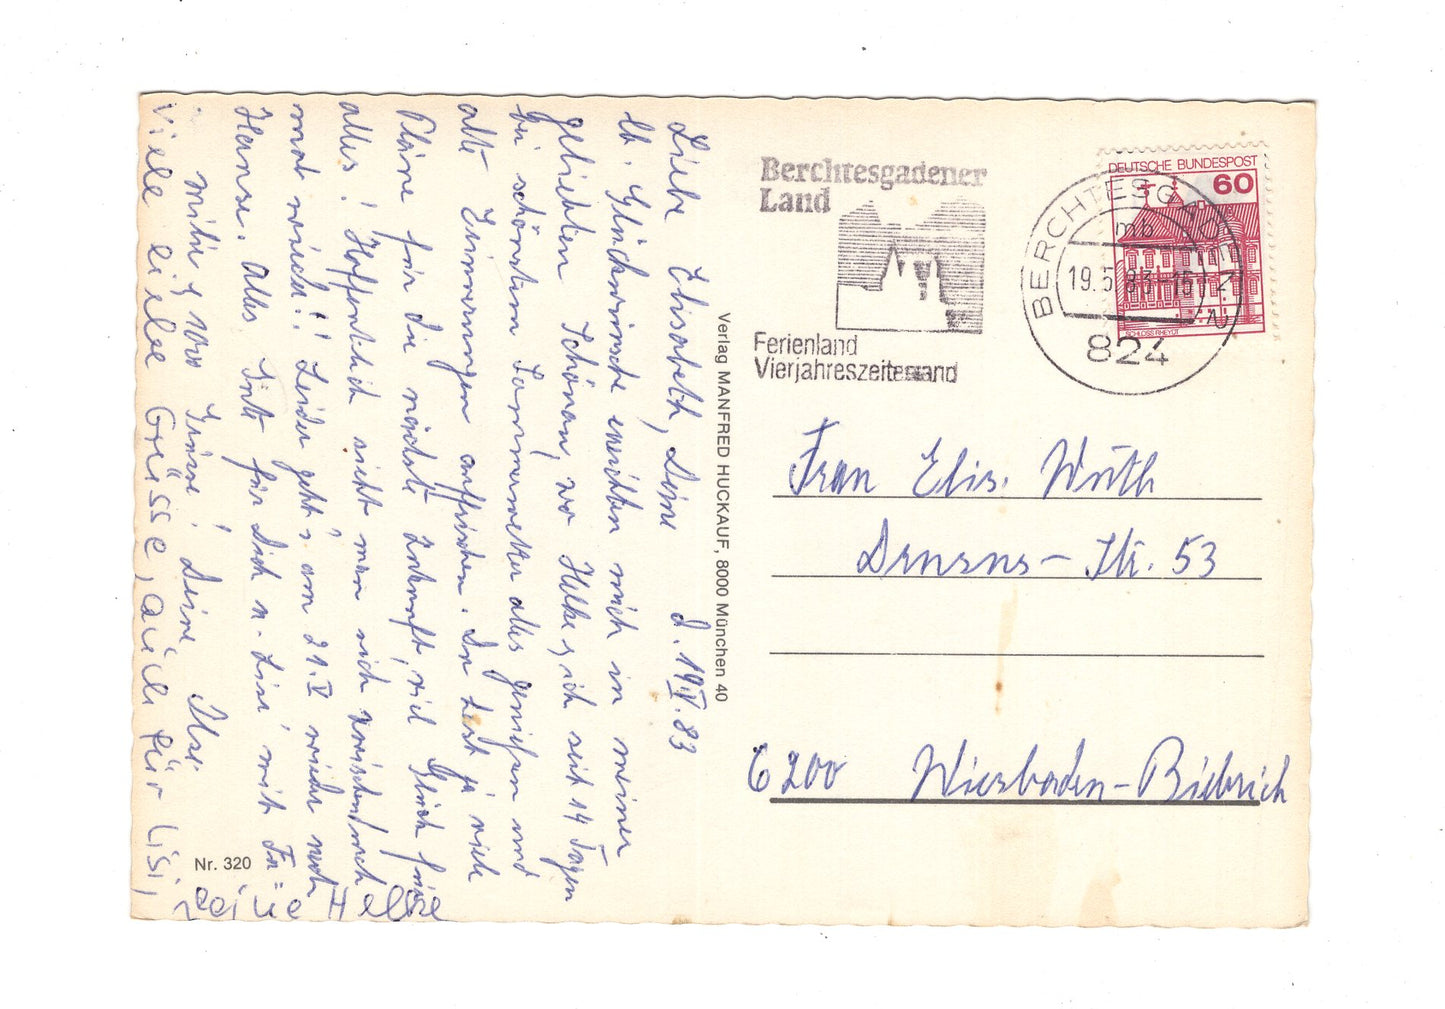 Liebe Elisabeth, Deine
d. 19.V.83
lb. Glückwünsche erreichten mich in meiner
geliebten Schönau, wo Helke u. ich seit 14 Tagen
bei schönstem Sommerwetter alles genießen und
alte Erinnerungen auffrischen. Du hast ja viele
Pläne für die nächste Zukunft, viel Glück für
alles! Hoffentlich sieht man sich zwischendurch
mal wieder!! Leider geht's am 21.V wieder nach
Hause. Alles Gute für Dich u. Lisi mit Fa=
milie u. Grüsse! Deine Ilse
Viele liebe Grüsse, auch für Lisi,
Deine Helke
Nr. 320
Verlag MANFRED HUCKAUF, 8000 München 40
Berchtesgadener
Land
Ferienland
Vierjahreszeitenland
BERCHTESGADEN 2
mb
19.5.83-15
824
DEUTSCHE BUNDESPOST
60
SCHLOSS RHEYDT
Frau Elis. Wüth
Str. 53
6200 Wiesbaden-Biebrich